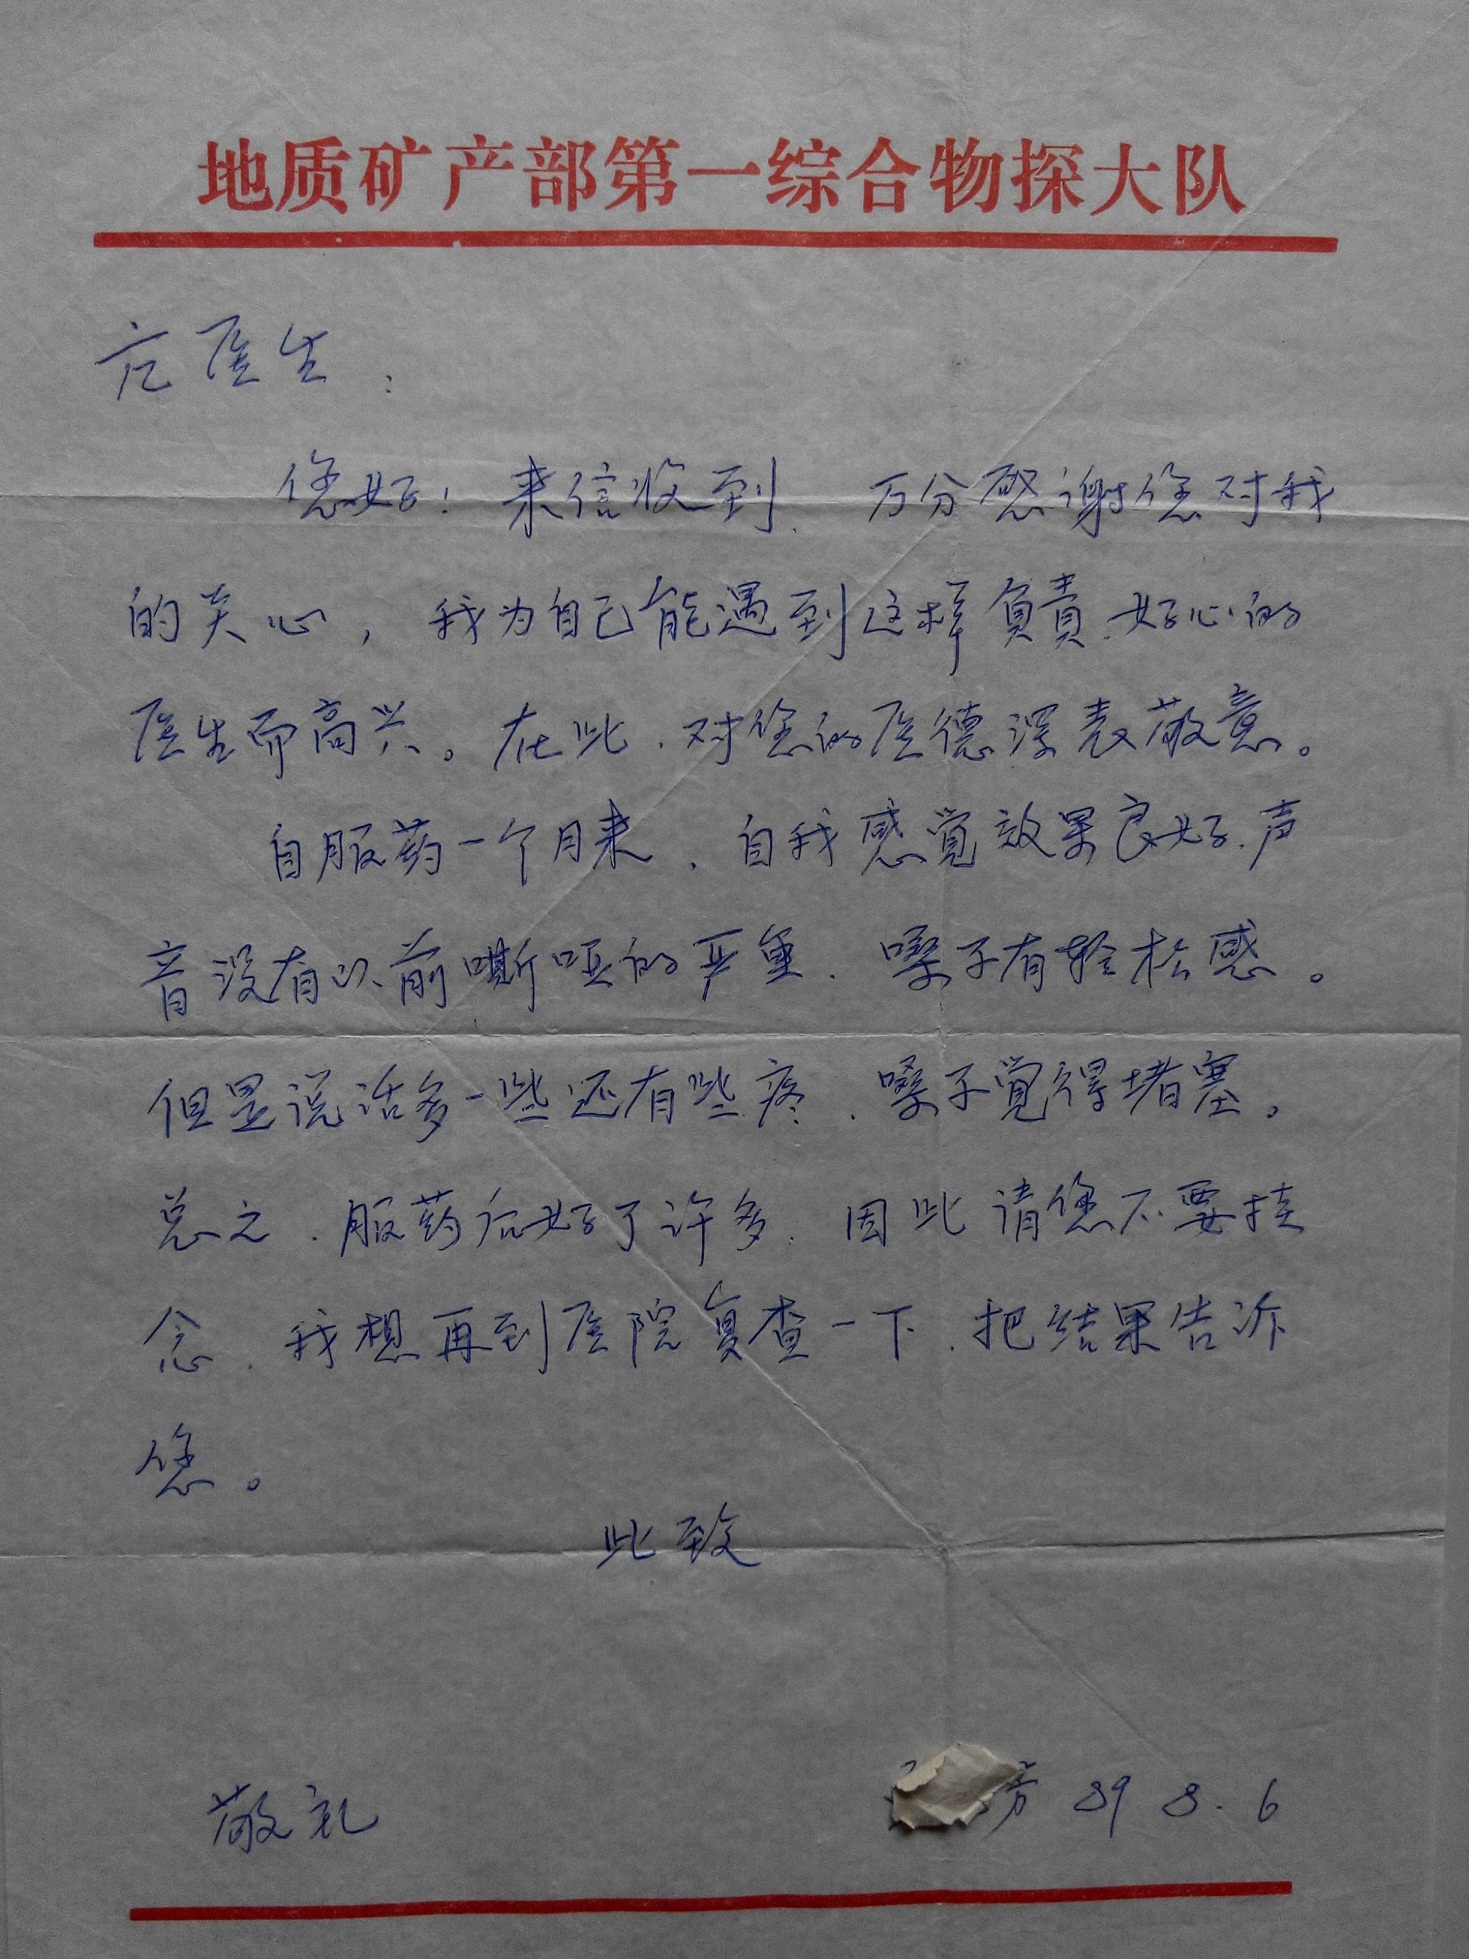 地质矿产部第一综合物探大队
医生：
您好！来信收到，万分感谢您对我
的关心，我为自己能遇到这样负责、好心的
医生而高兴。在此，对您的医德深表敬意。
自服药一个月来，自我感觉效果良好，声
音没有以前嘶哑的严重，嗓子有轻松感。
但是说话多一些还有些疼，嗓子觉得堵塞。
总之，服药后好了许多，因此请您不要挂
念，我想再到医院复查一下，把结果告诉
您。
此致
敬礼
芳 89 8.6